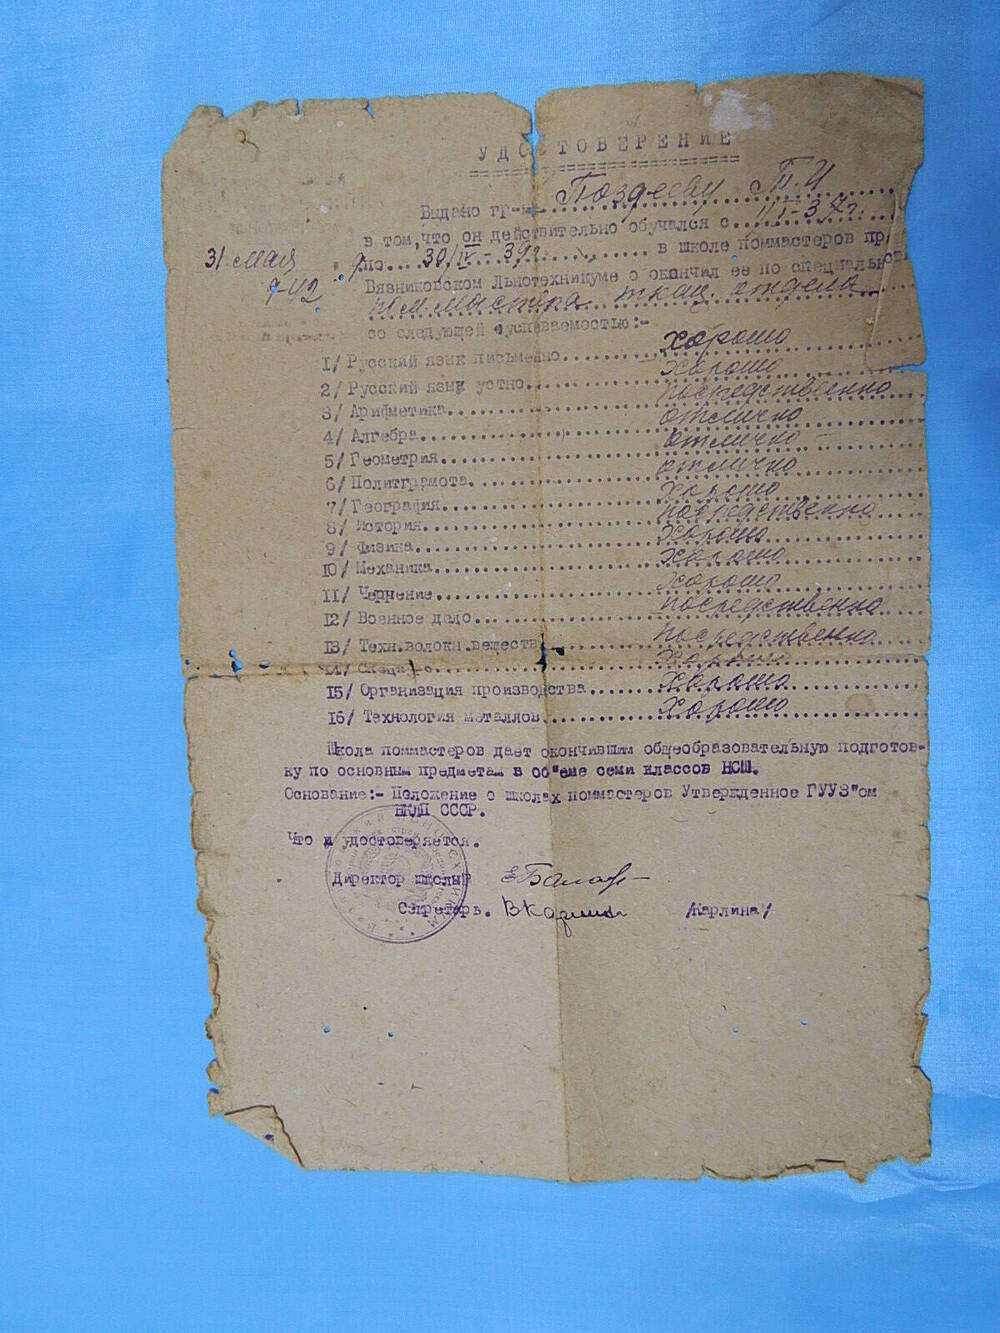 УДОСТОВЕРЕНИЕ
Выдано гр-н Поздееву Т. И
в том, что он действительно обучался с
31 мая по 30/IX - 39 г. в школе поммастеров пр
9-42 Вязниковском Льнотехникуме о окончил ее по специальнос
пом. мастера ткац отдела
со следующей успеваемостью:-
1/ Русский язык письменно хорошо
2/ Русский язык устно хорошо
3/ Арифметика посредственно
4/ Алгебра отлично
5/ Геометрия отлично
6/ Политграмота отлично
7/ География хорошо
8/ История посредственно
9/ Физика хорошо
10/ Механика хорошо
11/ Черчение хорошо
12/ Военное дело посредственно
13/ Техн.волокн.веществ посредственно
14/ хорошо
15/ Организация производства хорошо
16/ Технология металлов хорошо
Школа поммастеров дает окончившим общеобразовательную подготов-
ку по основным предметам в об"еме семи классов НСШ.
Основание:- Положение о школах поммастеров Утвержденное ГУУЗ"ом
НКЛП СССР.
Что и удостоверяется.
Директор школы
Секретарь. ВКарлина /Карлина/